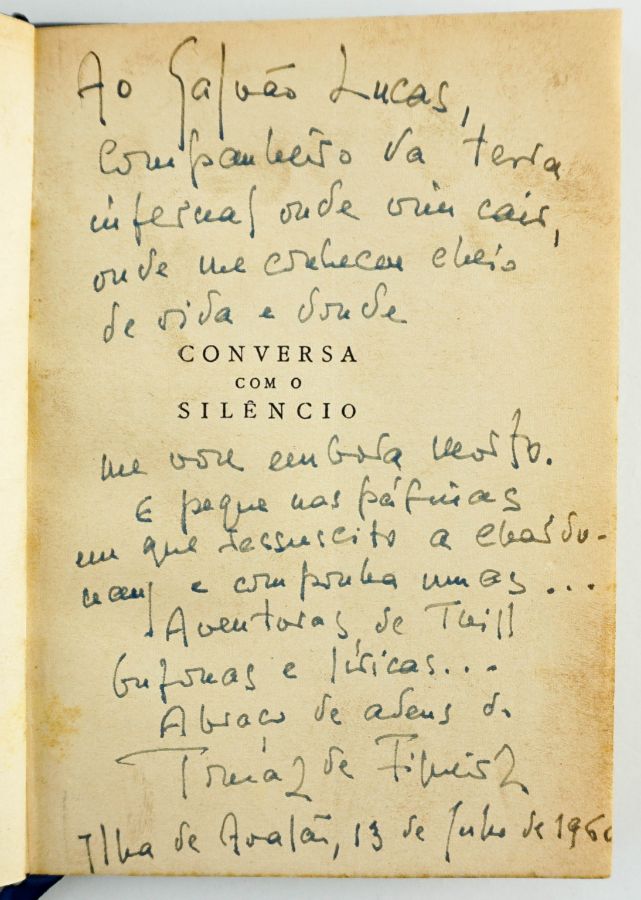 Ao Galvão Lucas,
companheiro da terra
infernal onde vim cair,
onde me conheceu cheio
de vida e donde
CONVERSA
COM O
SILÊNCIO
me vou embora morto.
E pegue nas páginas
em que ressuscito a
e componha umas...
Aventuras de Till
bufonas e líricas...
Abraço de adeus do
Tomaz de Figueiredo
Ilha de Avalão, 13 de Julho de 1960